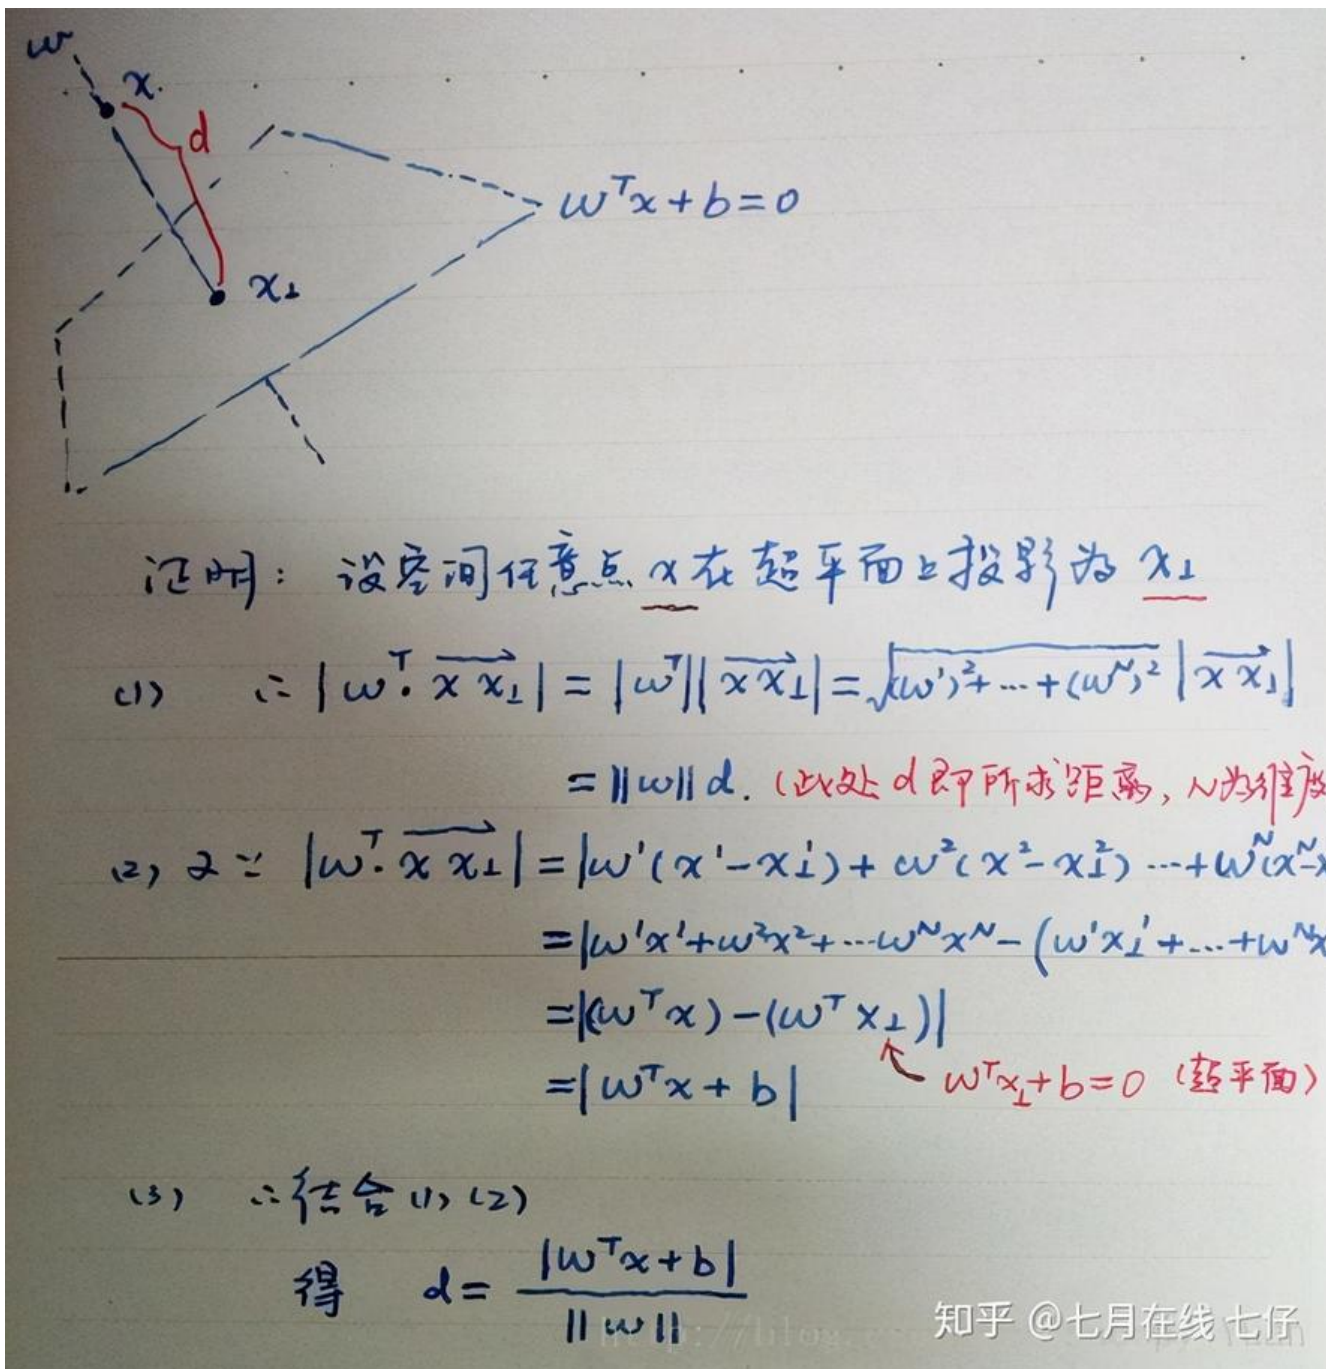 w
x
d
wᵀx+b=0
x⊥
证明: 设空间任意点 x 在超平面上投影为 x⊥
(1) ∴ |wᵀ·xx⊥| = |wᵀ||xx⊥| = √(w¹)²+…+(wᴺ)² |xx⊥|
= ||w|| d. (此处 d 即所求距离, N为维度
(2) 又∵ |wᵀ·xx⊥| = |w¹(x¹-x⊥¹) + w²(x²-x⊥²) …+wᴺ(xᴺ-x
= |w¹x¹+w²x²+…wᴺxᴺ-(w¹x⊥¹+…+wᴺx
=|(wᵀx)-(wᵀx⊥)|
=|wᵀx+b| wᵀx⊥+b=0 (超平面)
(3) ∴结合(1)(2)
得 d= |wᵀx+b| / ||w||
知乎 @七月在线 七仔